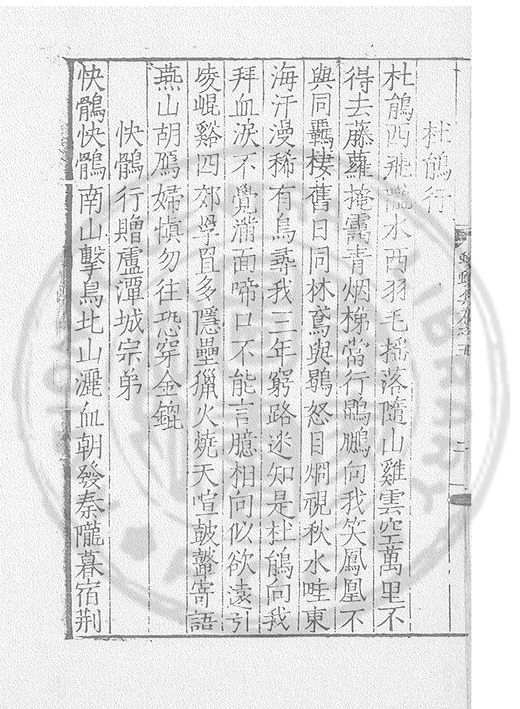 杜鵑行
杜鵑西飛隴水西羽毛搖落隨山雞雲空萬里不
得去藤蘿掩靄青烟梯當行鵰鵬向我笑鳳凰不
與同羈棲舊日同林鳶與鶚怒目烱視秋水哇東
海汗漫稀有鳥尋我三年窮路迷知是杜鵑向我
拜血淚不覺滿面啼口不能言臆相向似欲遠引
崚崐谿四郊孚罝多隱壘獵火燒天喧鼓鼙寄語
燕山胡鴈婦慎勿往恐穿金鎞
快鶻行贈盧潭城宗弟
快鶻快鶻南山擊鳥北山灑血朝發秦隴暮宿荆